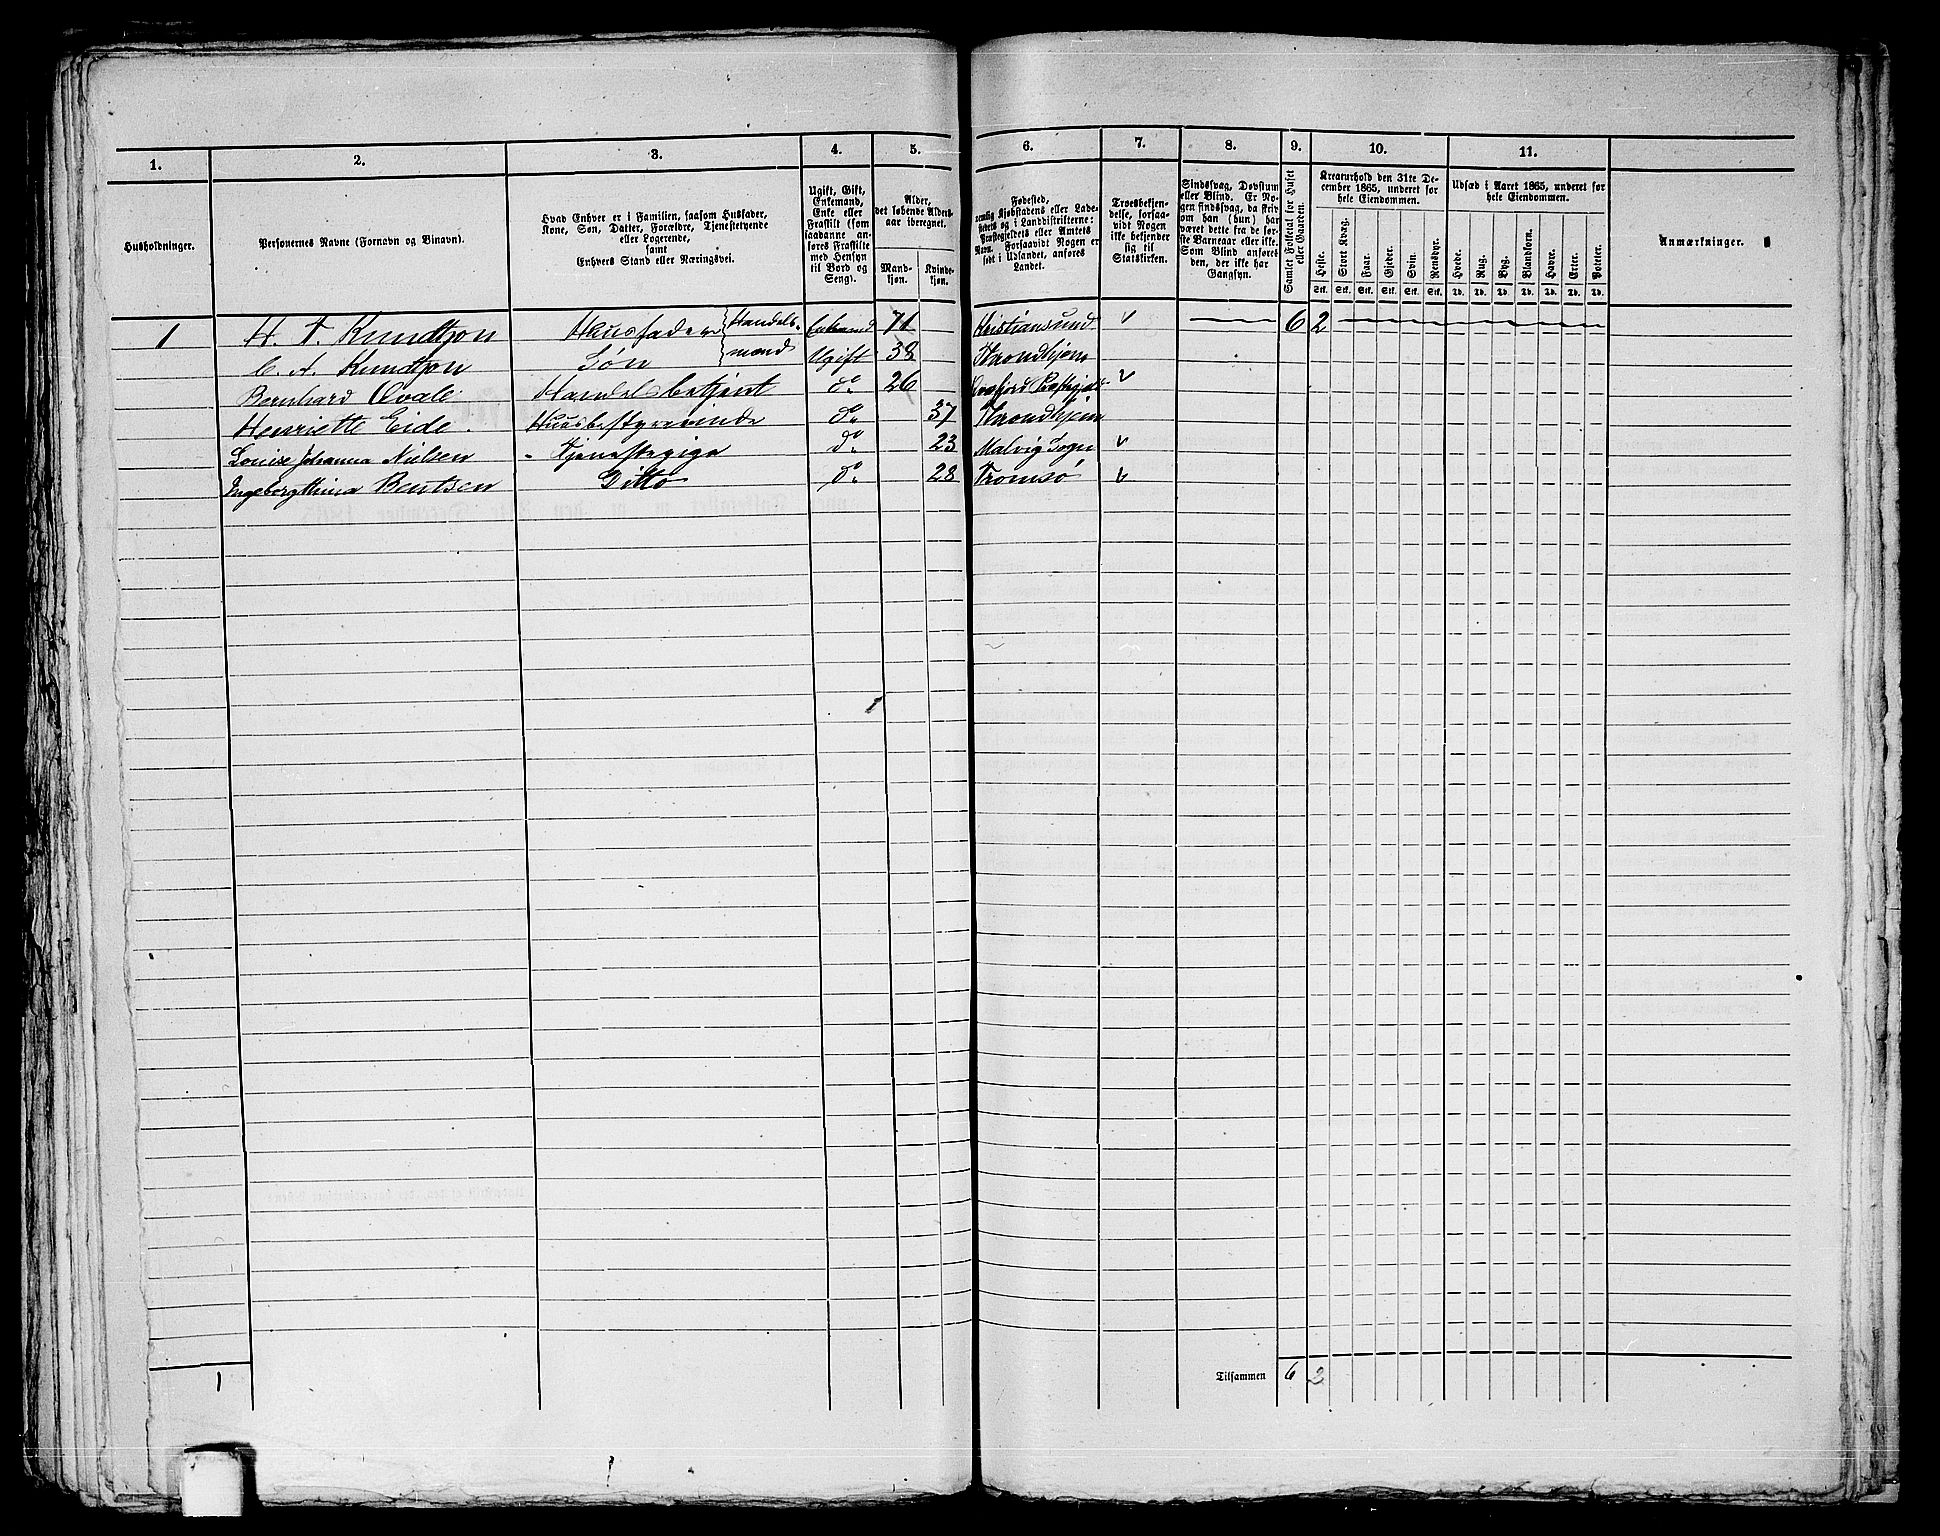 1. 2. 3. 4. 5. 6. 7. 8. 9. 10. 11.
Husholdninger.
Personernes Navne (Fornavn og Binavn).
Hvad Enhver er i Familien, saasom Husfader,
Kone, Søn, Datter, Forældre, Tjenestetyende
eller Logerende,
samt
Enhvers Stand eller Næringsvei.
Ugift, Gift,
Enkemand,
Enke eller
Fraskilt (som
saadanne an-
føres Fraskilte
med Hensyn
til Bord og
Seng).
Alder,
det løbende Alders-
aar iberegnet.
Mand-
kjøn.
Kvinde-
kjøn.
Fødested,
nemlig Kjøbstadens eller Lade-
stedets og i Landdistrikterne:
Præstegjeldets eller Amtets
Navn. Forsaavidt Nogen er
født i Udlandet, anføres
Landet.
Troesbekjen-
delse, forsaa-
vidt Nogen
ikke bekjender
sig til
Statskirken.
Sindssvag, Døvstum
eller Blind. Er No-
gen sindssvag, da skriv
om han (hun) har
været dette fra de før-
ste Barneaar eller ikke.
Som Blind ansøres
den, der ikke har
Gangsyn.
Samlet Folketal for Huset
eller Gaarden.
Kreaturhold den 31te De-
cember 1865, underet for
hele Eiendommen.
Heste. Stort Kvæg. Faar. Gjeder. Svin. Rensdyr.
Stk. Stk. Stk. Stk. Stk. Stk.
Udsæd i Aaret 1865, underet for
hele Eiendommen.
Hvede. Rug. Byg. Blandkorn. Havre. Erter. Poteter.
Td. Td. Td. Td. Td. Td. Td.
Anmærkninger.
1 H. T. Knudtzon Husfader Handels- Enkemand 71 Kristiansund 6 2
C. A. Knudtzon Søn mænd Ugift 38 Throndhjem
Bernhard Qvale Handelsbetjent do 26
Henriette Eide. Husbestyrerinde do 37 Throndhjem
Louise Johanna Nielsen Tjenestepige do 23 Malvig Sogn
Ingeborg Bentsen Ditto do 28 Tromsø
1 Tilsammen 6 2